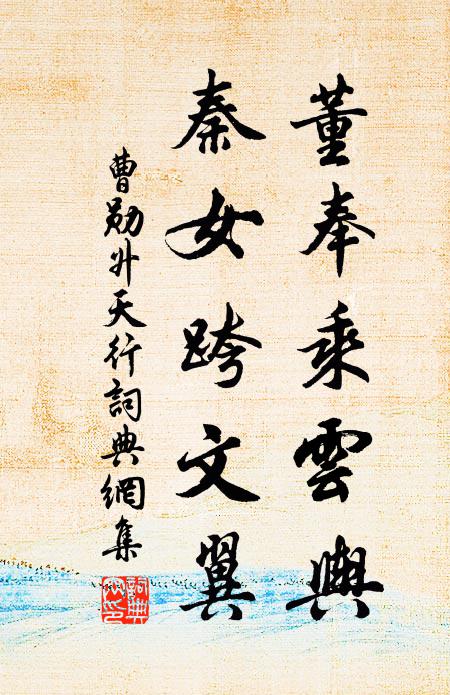 董奉乘雲輿
秦女跨文翼
曹勛升天行詞典網集